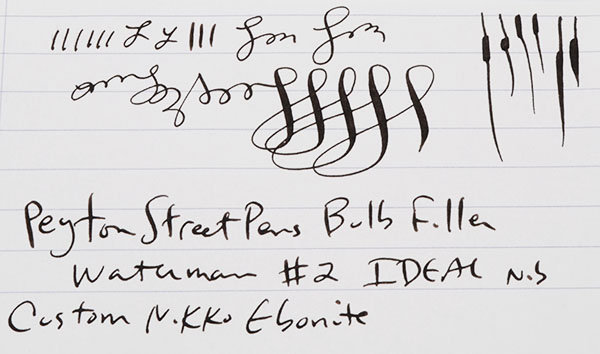 Peyton Street Pens Bulb Filler
Waterman #2 IDEAL nib
Custom Nikko Ebonite